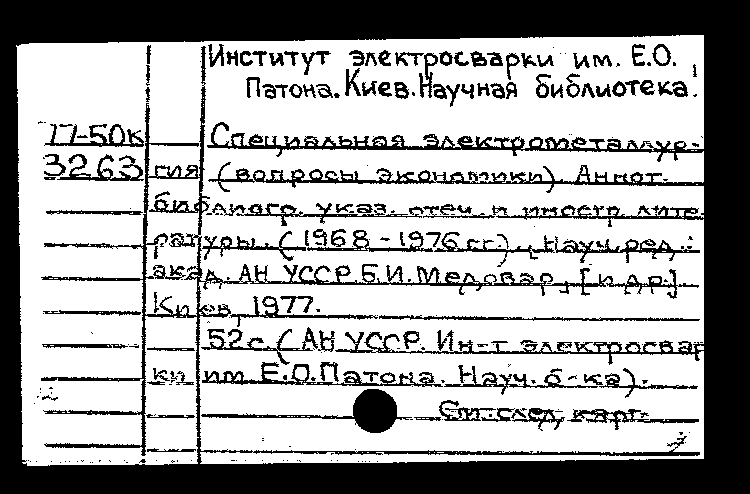 Институт электросварки им. Е.О.
Патона. Киев. Научная библиотека.
77-50к Специальная электрометаллур-
3263 гия (вопросы экономики). Аннот.
библиогр. указ. отеч. и иностр. лите-
ратуры. (1968-1976 гг.), Науч. ред.:
акад. АН УССР Б.И. Медовар, [и др.].
Киев, 1977.
52 с. (АН УССР. Ин-т электросвар
ки им. Е.О. Патона. Науч. б-ка).
См. след. карт.